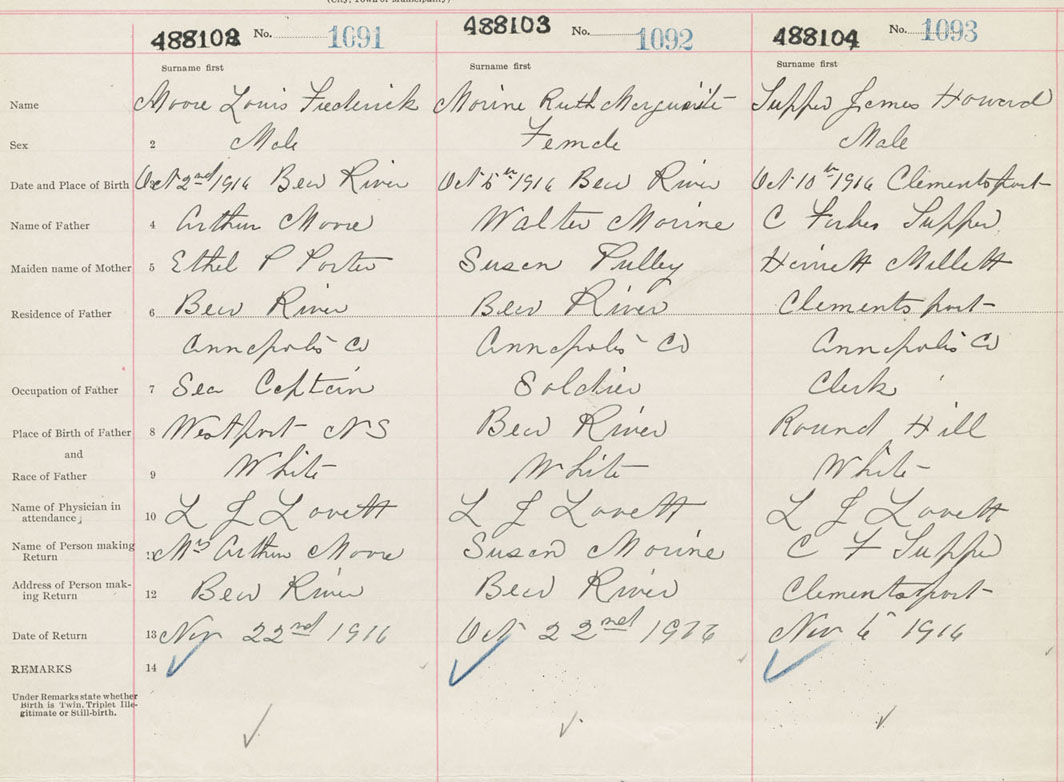 (City, Town or Municipality)
488102 No. 1091 488103 No. 1092 488104 No. 1093
Surname first Surname first Surname first
Name Moore Louis Frederick Morine Ruth Marguerite Supper James Howard
Sex 2 Male Female Male
Date and Place of Birth 3 Oct 2nd 1916 Bear River Oct 5th 1916 Bear River Oct 10th 1916 Clementsport
Name of Father 4 Arthur Moore Walter Morine C Forbes Supper
Maiden name of Mother 5 Ethel P Porter Susan Pulley Harriett Millett
Residence of Father 6 Bear River Bear River Clementsport
Annapolis Co Annapolis Co Annapolis Co
Occupation of Father 7 Sea Captain Soldier Clerk
Place of Birth of Father 8 Westport NS Bear River Round Hill
and
Race of Father 9 White White White
Name of Physician in
attendance; 10 L J Lovett L J Lovett L J Lovett
Name of Person making
Return 11 Mrs Arthur Moore Susan Morine C F Supper
Address of Person mak-
ing Return 12 Bear River Bear River Clementsport
Date of Return 13 Nov 22nd 1916 Oct 22nd 1916 Nov 6 1916
REMARKS 14
Under Remarks state whether
Birth is Twin, Triplet Ille-
gitimate or Still-birth.